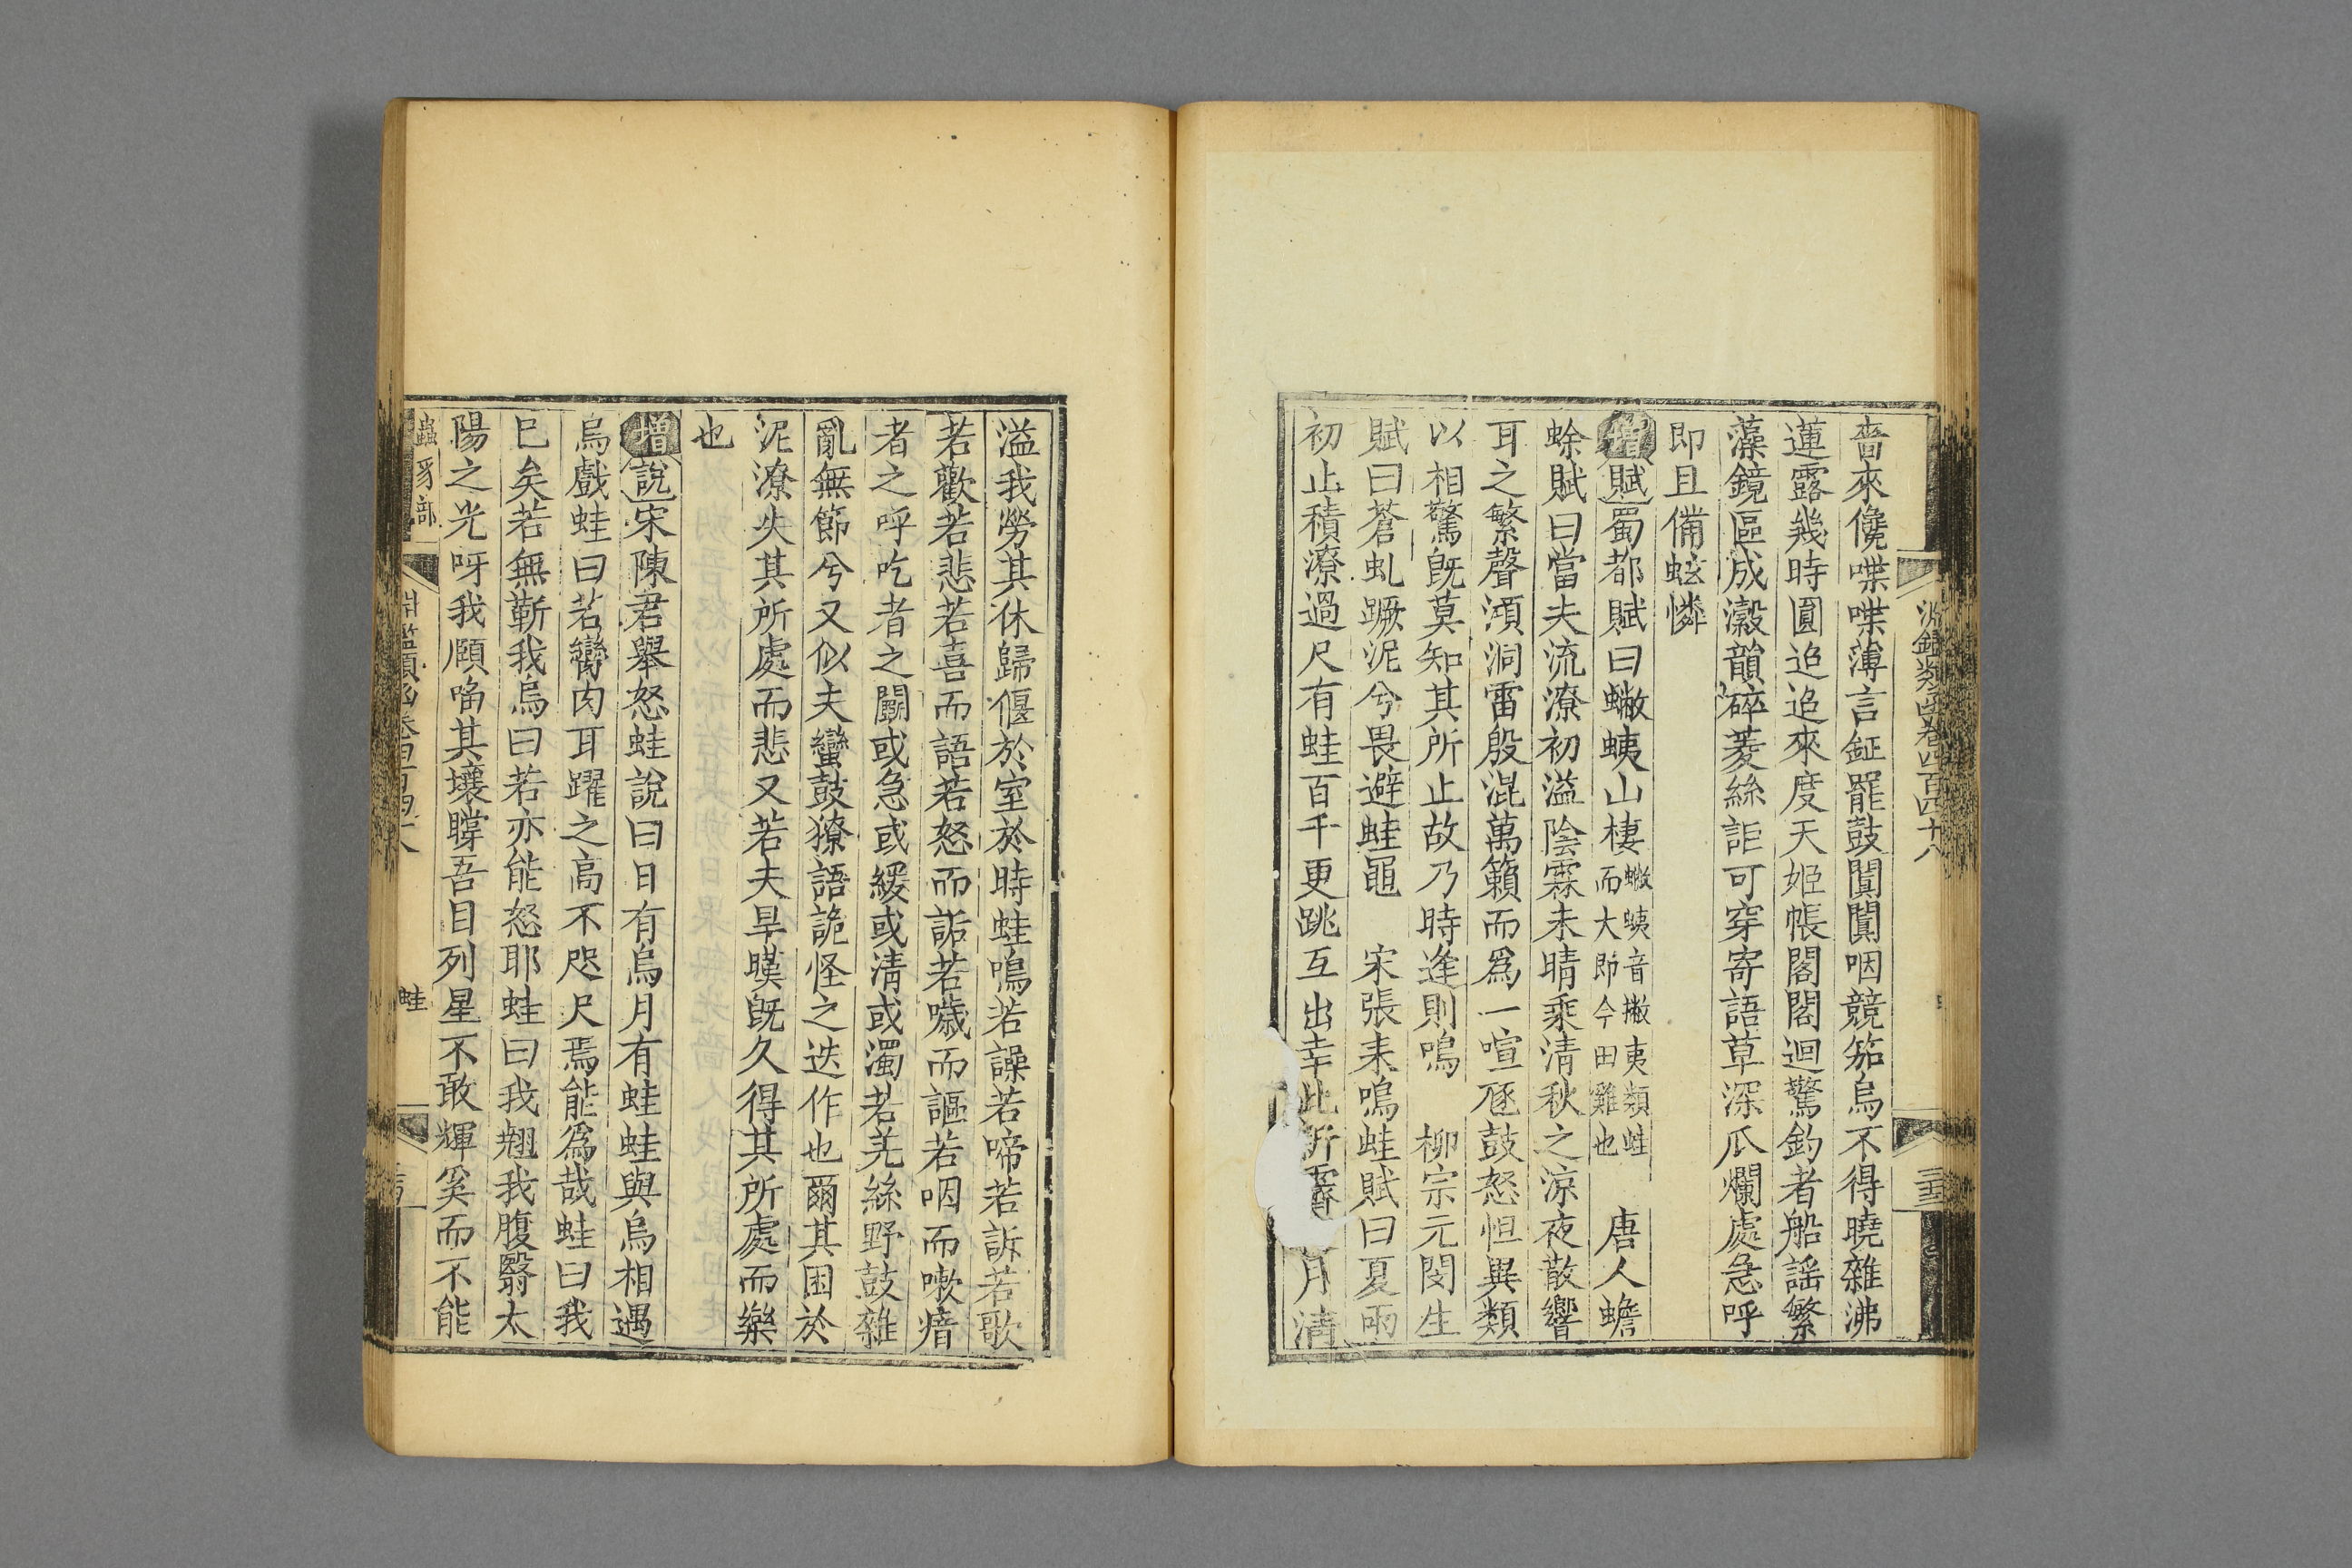 淵鑑類函卷四百四十八
嗇來儳喋喋薄言鉦罷鼓闐闐咽競笳烏不得曉雜沸
蓮露幾時圓追追來度天姬帳閣閣迴驚釣者船謠繁
藻鏡區成瀫韻碎菱絲詎可穿寄語草深瓜爛處急呼
即且備蚿憐
增賦蜀都賦曰蟞蛦山棲蟞蛦音撇夷類蛙而大即今田雞也 唐人蟾
蜍賦曰當夫流潦初溢陰霖未晴乘清秋之涼夜散響
耳之繁聲澒洞雷殷混萬籟而爲一喧豗鼓怒怛異類
以相驚旣莫知其所止故乃時逢則鳴 柳宗元閔生
賦曰蒼虬蹶泥兮畏避蛙黽 宋張耒鳴蛙賦曰夏雨
初止積潦過尺有蛙百千更跳互出幸此新霽月清
溢我勞其休歸偃於室於時蛙鳴若譟若啼若訴若歌
若歡若悲若喜而語若怒而詬若噦而謳若咽而嗽瘖
者之呼吃者之鬬或急或緩或清或濁若羌絲野鼓雜
亂無節兮又似夫蠻鼓獠語詭怪之迭作也爾其困於
泥潦失其所處而悲又若夫旱暵旣久得其所處而樂
也
增說宋陳君舉怒蛙說曰日有烏月有蛙蛙與烏相遇
烏戲蛙曰若臠肉耳躍之高不咫尺焉能爲哉蛙曰我
巳矣若無靳我烏曰若亦能怒耶蛙曰我翹我腹翳太
陽之光呀我頤啗其壤瞠吾目列星不敢輝奚而不能
蟲豸部
蛙